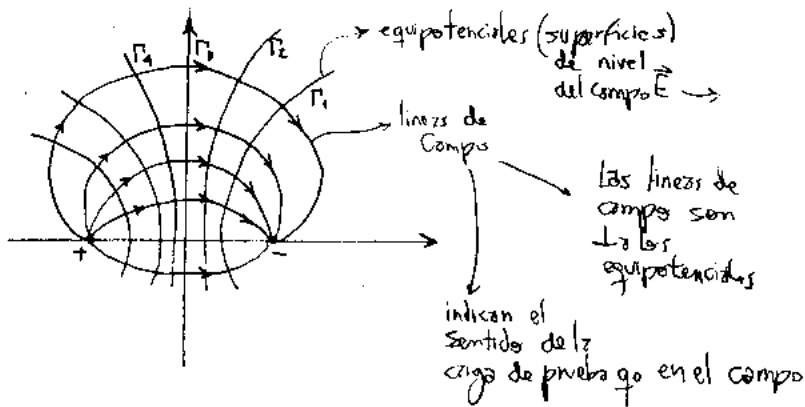 Γ4
Γ3
Γ2
Γ1
equipotenciales (superficies)
de nivel
del campo E⃗ →
lineas de
Campo
Las lineas de
campo son
⊥ a las
equipotenciales
indican el
sentido de la
carga de prueba q0 en el campo
+
-